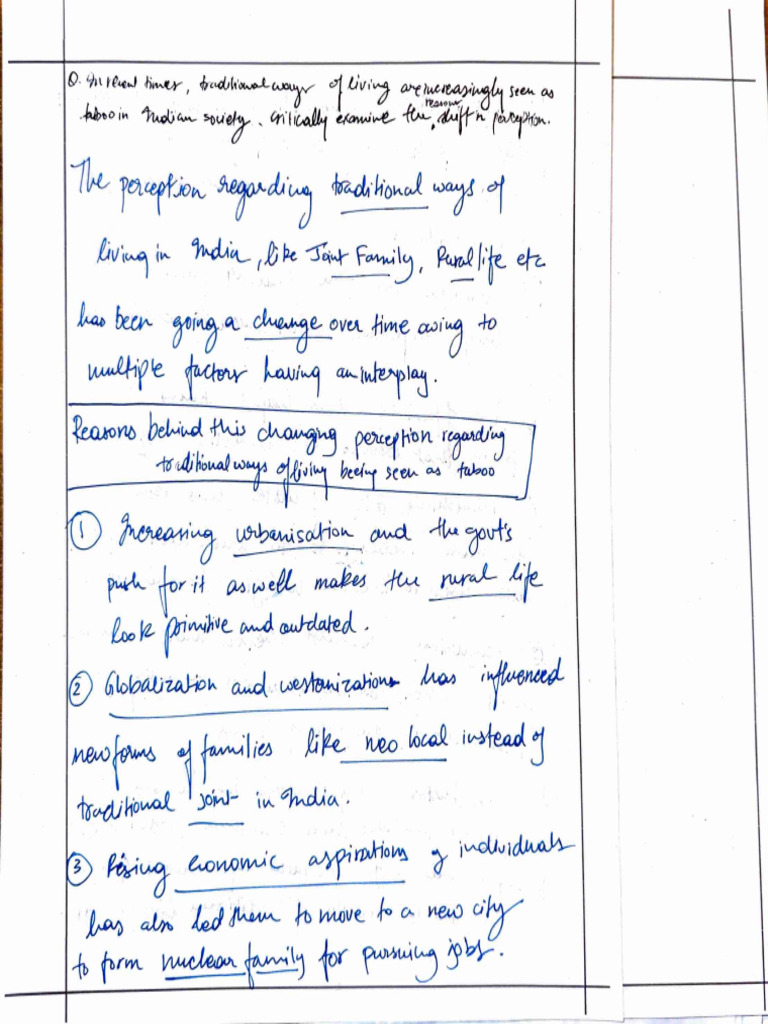 Q. In recent times, traditional ways of living are increasingly seen as
taboo in Indian society. Critically examine the reasons shift in perception.
The perception regarding traditional ways of
living in India, like Joint Family, Rural life etc
has been going a change over time owing to
multiple factors having an interplay.
Reasons behind this changing perception regarding
traditional ways of living beeing seen as taboo
1 Increasing urbanisation and the govt's
push for it as well makes the rural life
look primitive and outdated.
2 Globalization and westernization has influenced
new forms of families like neo local instead of
traditional joint in India.
3 Rising economic aspirations of individuals
has also led them to move to a new city
to form nuclear family for pursuing jobs.